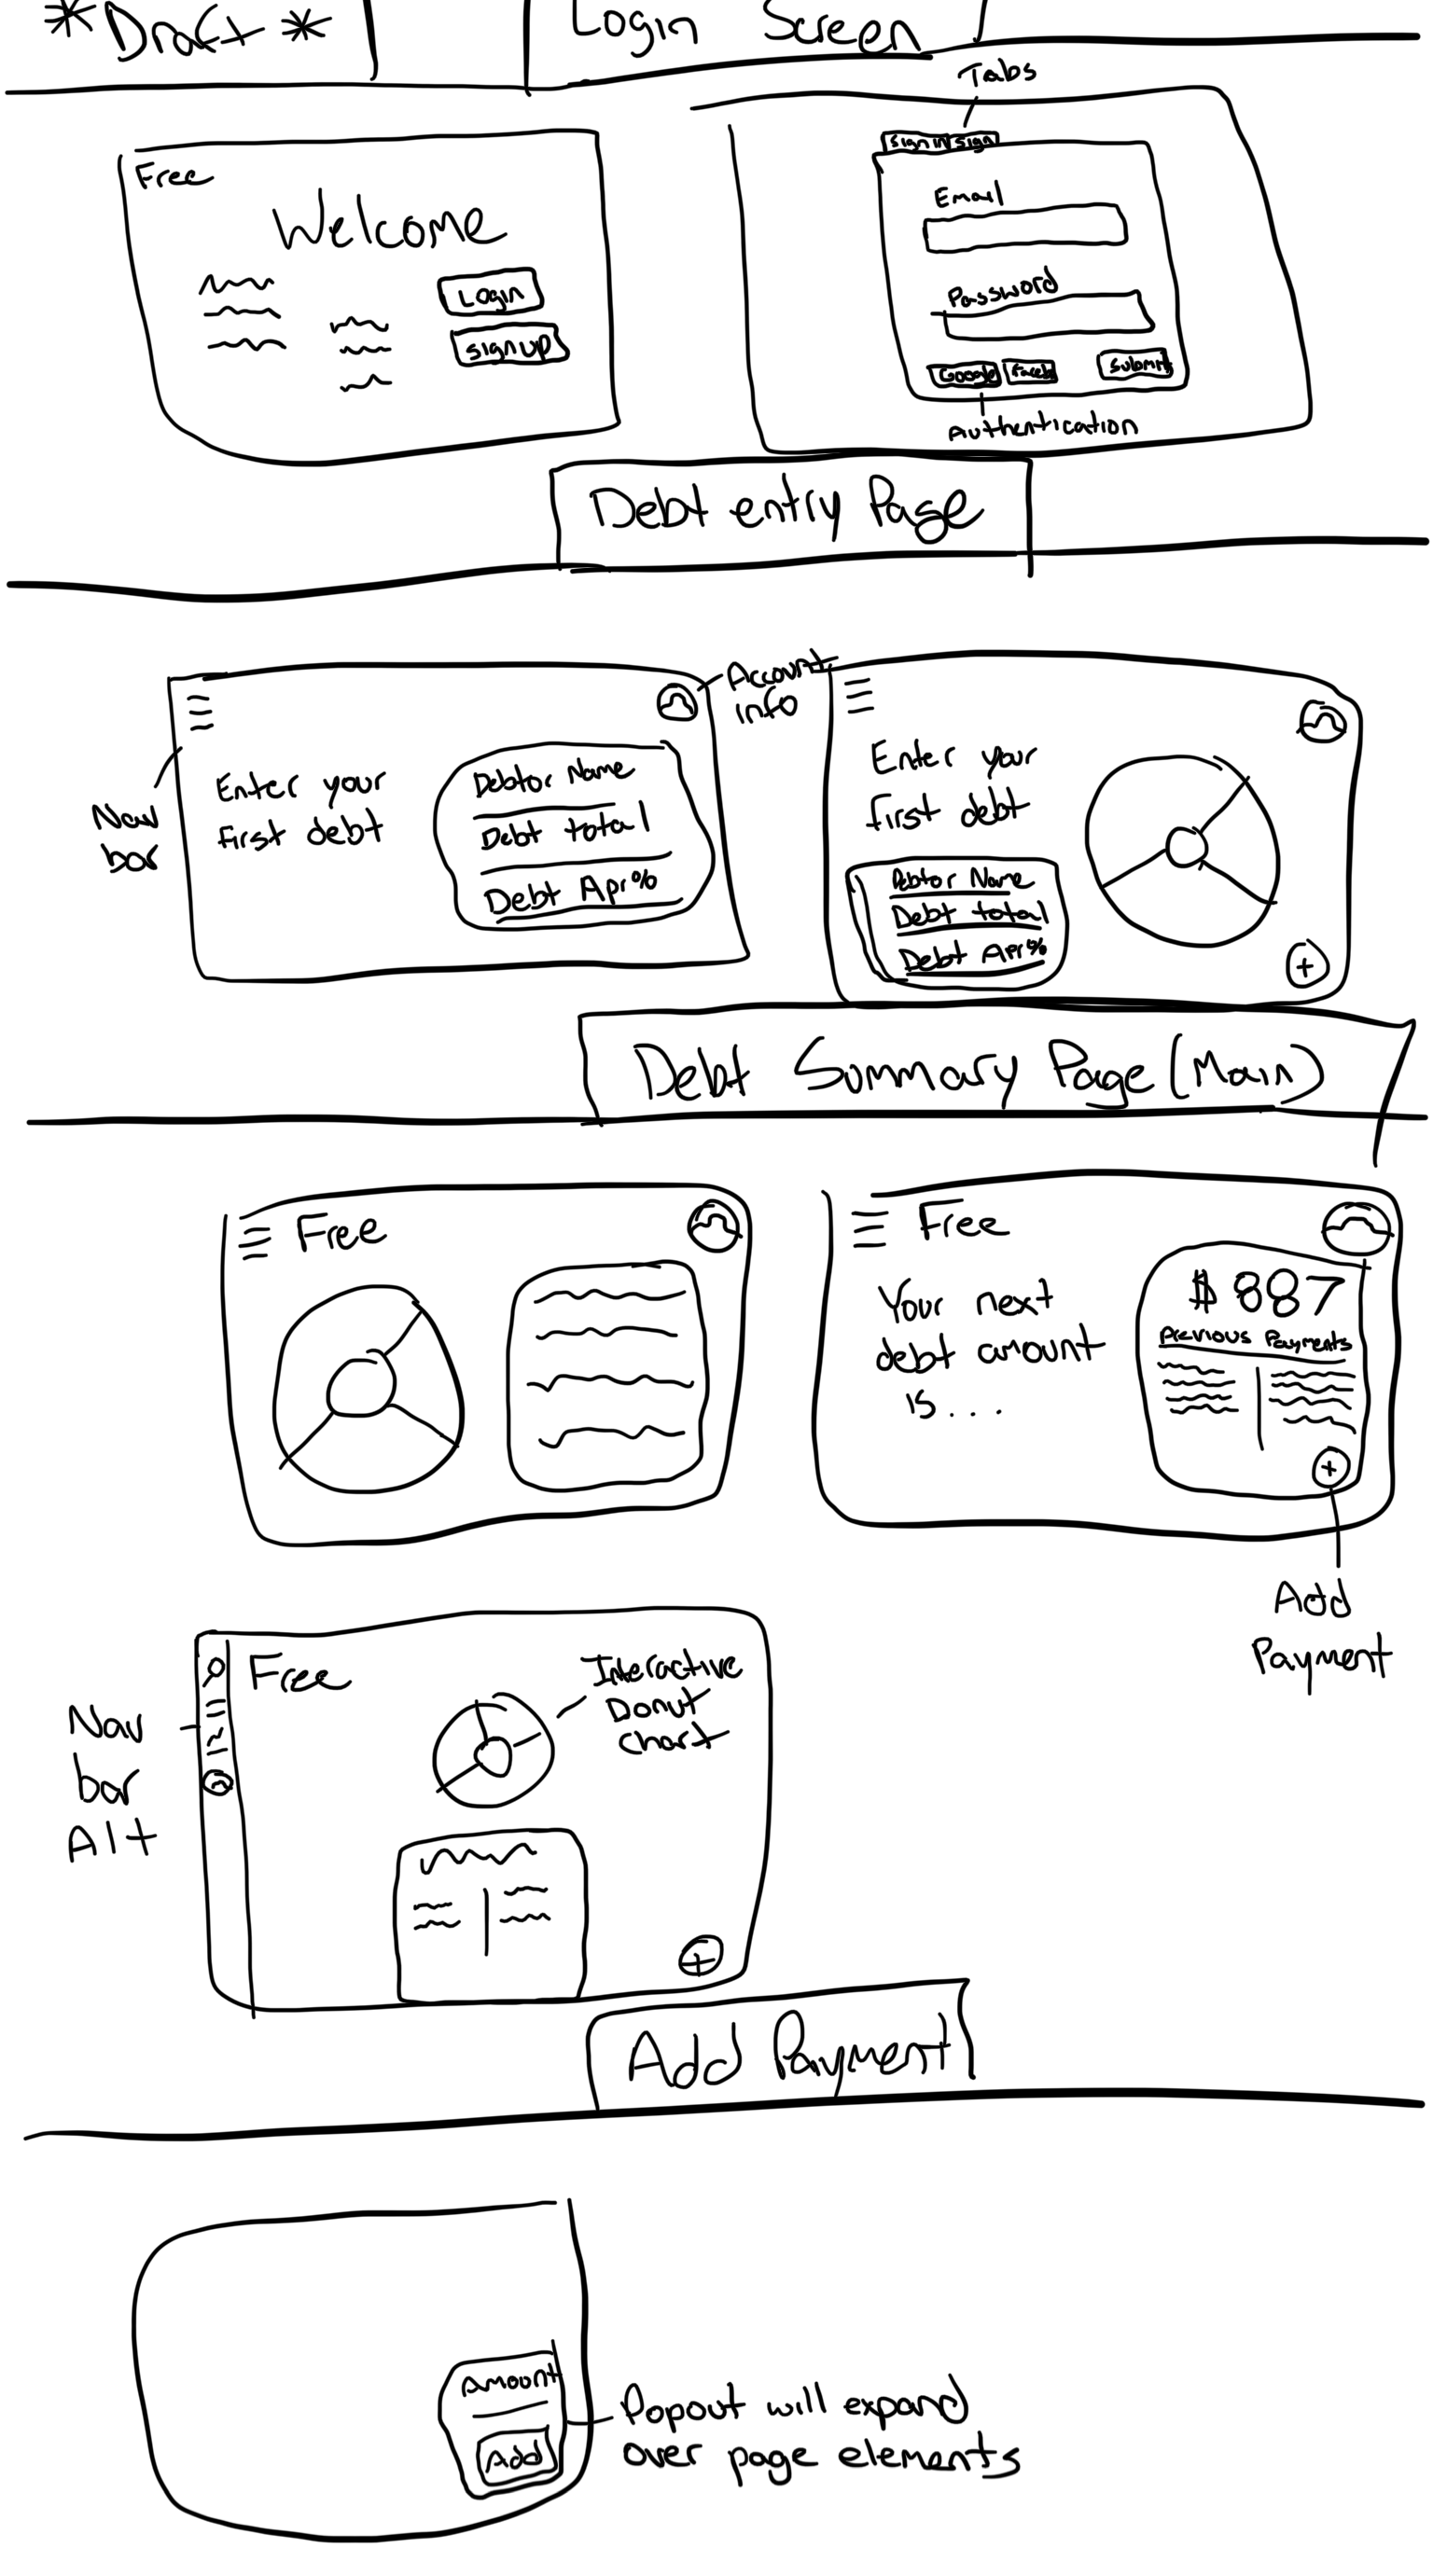 *Draft*
Login Screen
Tabs
Free
Welcome
Login
signup
sign in sign
Email
Password
Google Faceb Submit
Authentication
Debt entry Page
Account
info
Nav
bar
Enter your
first debt
Debtor Name
Debt total
Debt Apr%
Enter your
first debt
Debtor Name
Debt total
Debt Apr%
+
Debt Summary Page (Main)
Free
Free
Your next
debt amount
is...
$887
Previous Payments
+
Add
Payment
Nav
bar
Alt
Free
Interactive
Donut
chart
+
Add Payment
Amount
Add
Popout will expand
over page elements